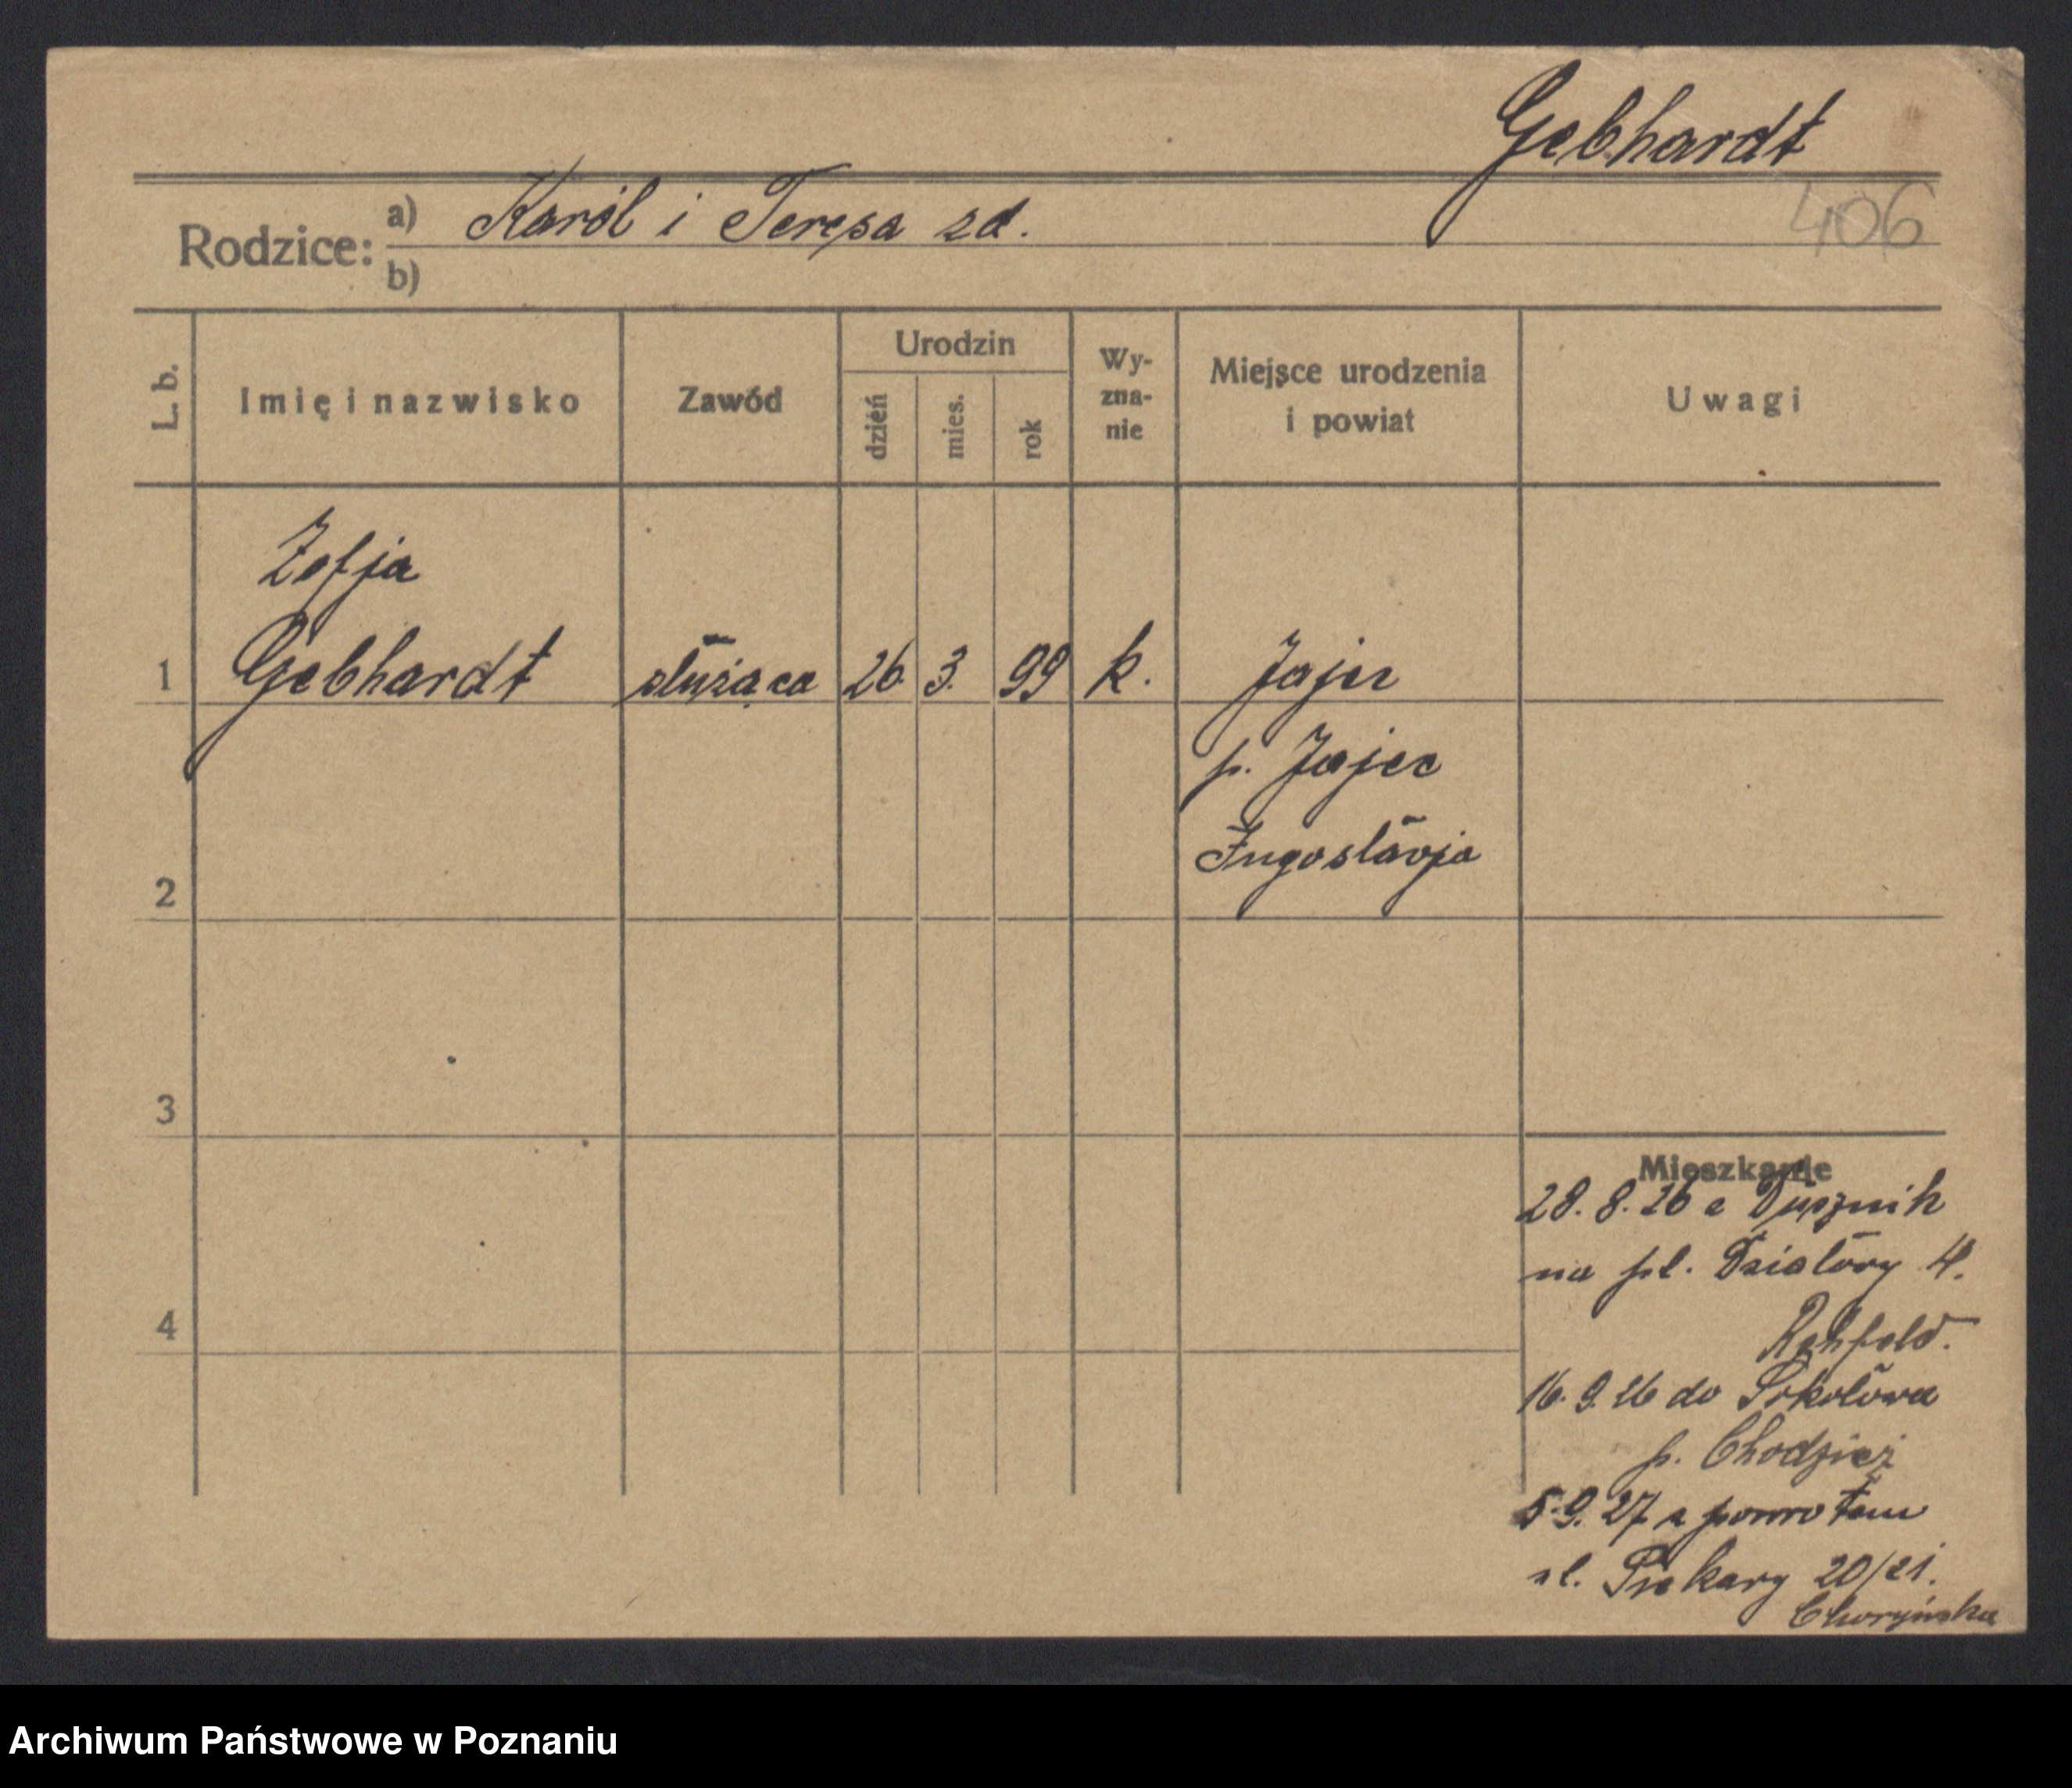 Gebhardt
406
Rodzice: a) Karól i Teresa zd.
b)
L. b. Imię i nazwisko Zawód Urodzin dzień mies. rok Wy-zna-nie Miejsce urodzenia i powiat Uwagi
Zofja
1 Gebhardt służąca 26. 3. 99 k. Jajce
p. Jajce
Jugosławja
2
3
4
Mieszkanie
28. 8. 26 z Dusznik
na pl. Działowy 4.
Rehfeld.
16. 9. 26 do Sokołowa
p. Chodzież
5. 9. 27 z powrotem
ul. Piekary 20/21.
Choryńska
Archiwum Państwowe w Poznaniu